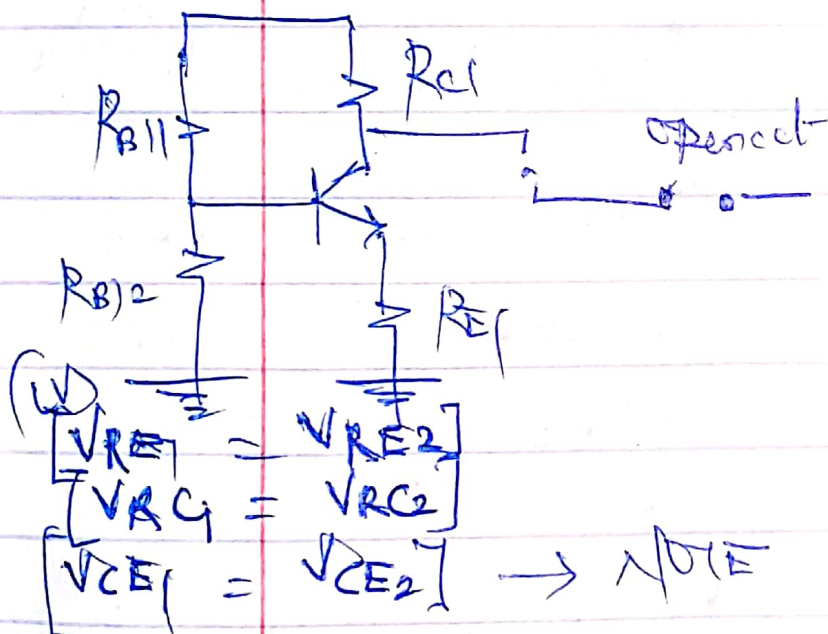 RC1
RB11
Openckt
RB12
RE1
[VRE1 = VRE2]
[VRC1 = VRC2]
[VCE1 = VCE2] → NOTE